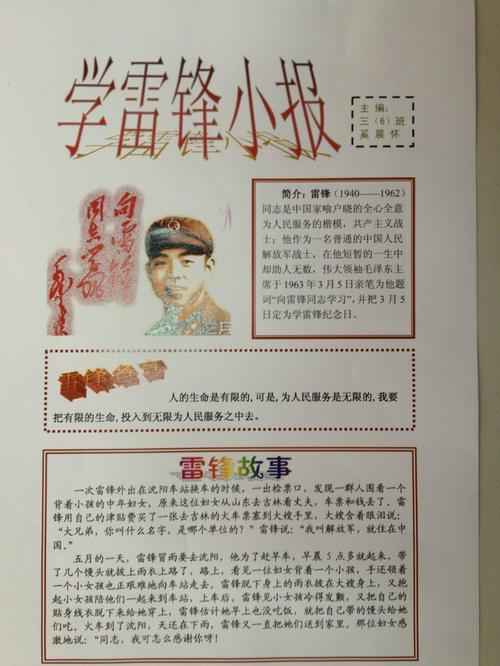 学雷锋小报
主 编:
三（6）班
奚展怀
向雷锋
同志学习
毛泽东
简介：雷锋（1940——1962）
同志是中国家喻户晓的全心全意
为人民服务的楷模，共产主义战
士；他作为一名普通的中国人民
解放军战士，在他短暂的一生中
却助人无数，伟大领袖毛泽东主
席于 1963 年 3 月 5 日亲笔为他题
词“向雷锋同志学习”，并把 3 月 5
日定为学雷锋纪念日。
雷锋名言
人的生命是有限的，可是，为人民服务是无限的，我要
把有限的生命，投入到无限为人民服务之中去。
雷锋故事
一次雷锋外出在沈阳车站换车的时候，一出检票口，发现一群人围着一个
背着小孩的中年妇女，原来这位妇女从山东去吉林看丈夫，车票和钱丢了，雷
锋用自己的津贴费买了一张去吉林的火车票塞到大嫂手里，大嫂含着眼泪说：
“大兄弟，你叫什么名字，是哪个单位的？”雷锋说：“我叫解放军，就住在中
国。”
五月的一天，雷锋冒雨要去沈阳，他为了赶早车，早晨 5 点多就起来，带
了几个馒头就披上雨衣上路了，路上，看见一位妇女背着一个小孩，手还领着
一个小女孩也正艰难地向车站走去，雷锋脱下身上的雨衣披在大嫂身上，又抱
起小女孩陪他们一起来到车站，上车后，雷锋见小女孩冷得发颤，又把自己的
贴身线衣脱下来给她穿上，雷锋估计她早上也没吃饭，就把自己带的馒头给她
们吃，火车到了沈阳，天还在下雨，雷锋又一直把她们送到家里，那位妇女感
激地说：“同志，我可怎么感谢你呀！